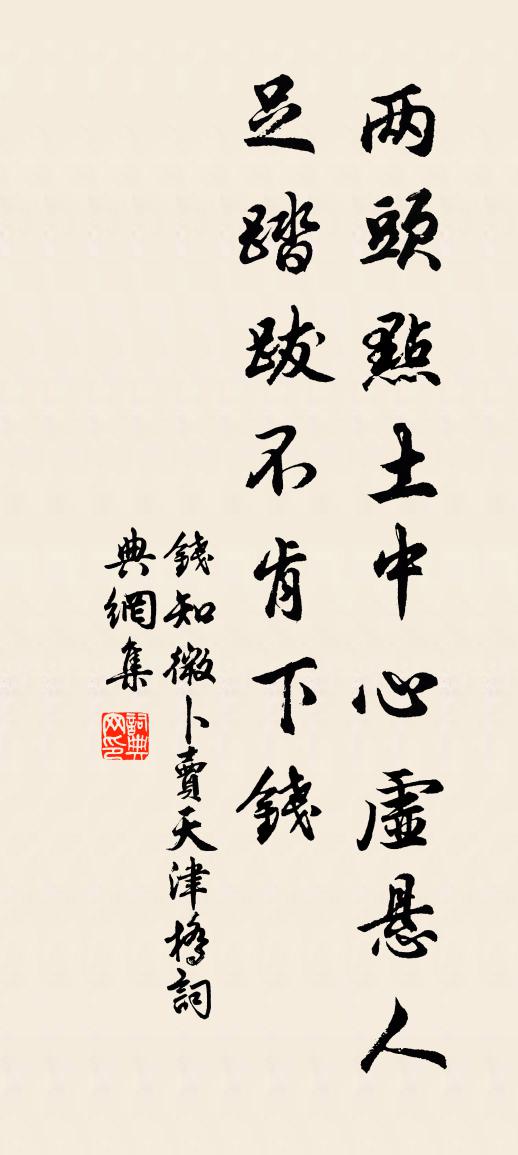 两頭點土中心虛悬人
足踏跋不肯下錢
錢知微卜賣天津橋詞
典網集
詞典
网印